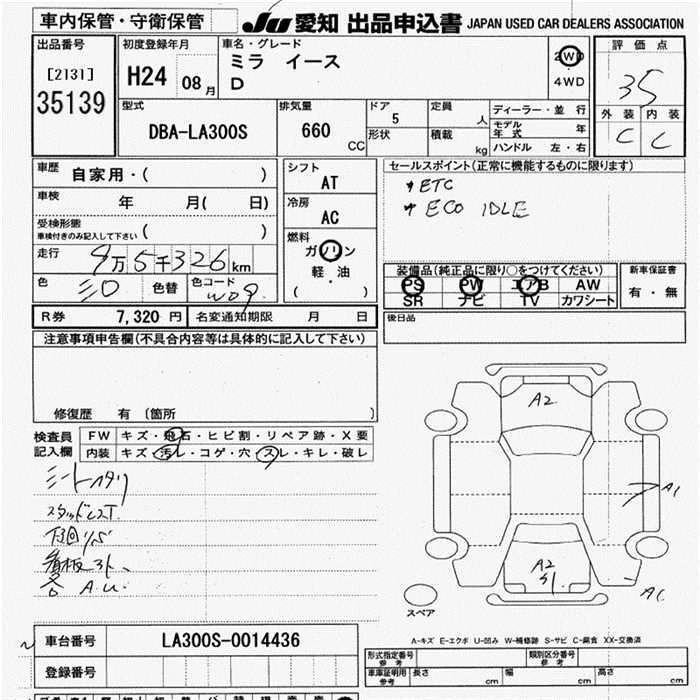 車内保管・守衛保管
JU 愛知 出品申込書 JAPAN USED CAR DEALERS ASSOCIATION
出品番号
[2131]
35139
初度登録年月
H24 08月
車名・グレード
ミラ イース
D
2WD
・
4WD
評価点
35
外装 内装
C C
型式
DBA-LA300S
排気量
660
CC
ドア
5
形状
定員
人
積載
kg
ディーラー・並行
モデル年式 年
ハンドル 左・右
車歴
自家用・( )
車検
年 月( 日)
受検形態
車検付きのみ記入して下さい ( )
走行
9万5千326km
色
シロ
色替
色コード
W09
シフト
AT
冷房
AC
燃料
ガソリン
軽・油
( )
セールスポイント(正常に機能するものに限ります)
ETC
ECO IDLE
装備品(純正品に限り○をつけてください)
PS PW エアB AW
SR ナビ TV カワシート
新車保証書
有・無
R券 7,320円 名変通知期限 月 日
後日品
注意事項申告欄(不具合内容等は具体的に記入して下さい)
修復歴 有 〔箇所 〕
検査員記入欄
FW キズ・飛石・ヒビ割・リペア跡・X要
内装 キズ・汚レ・コゲ・穴・スレ・キレ・破レ
シートヘタリ
スタッドレスT.
下回りS
看板ヌト、
各 A.U.
A2
A1
A2
S1.
A1.
スペア
A-キズ E-エクボ U-凹み W-補修跡 S-サビ C-腐食 XX-交換済
車台番号 LA300S-0014436
登録番号
形式指定番号
参考
類別区分番号
参考
車庫証明用
参考
長さ cm
幅 cm
高さ cm